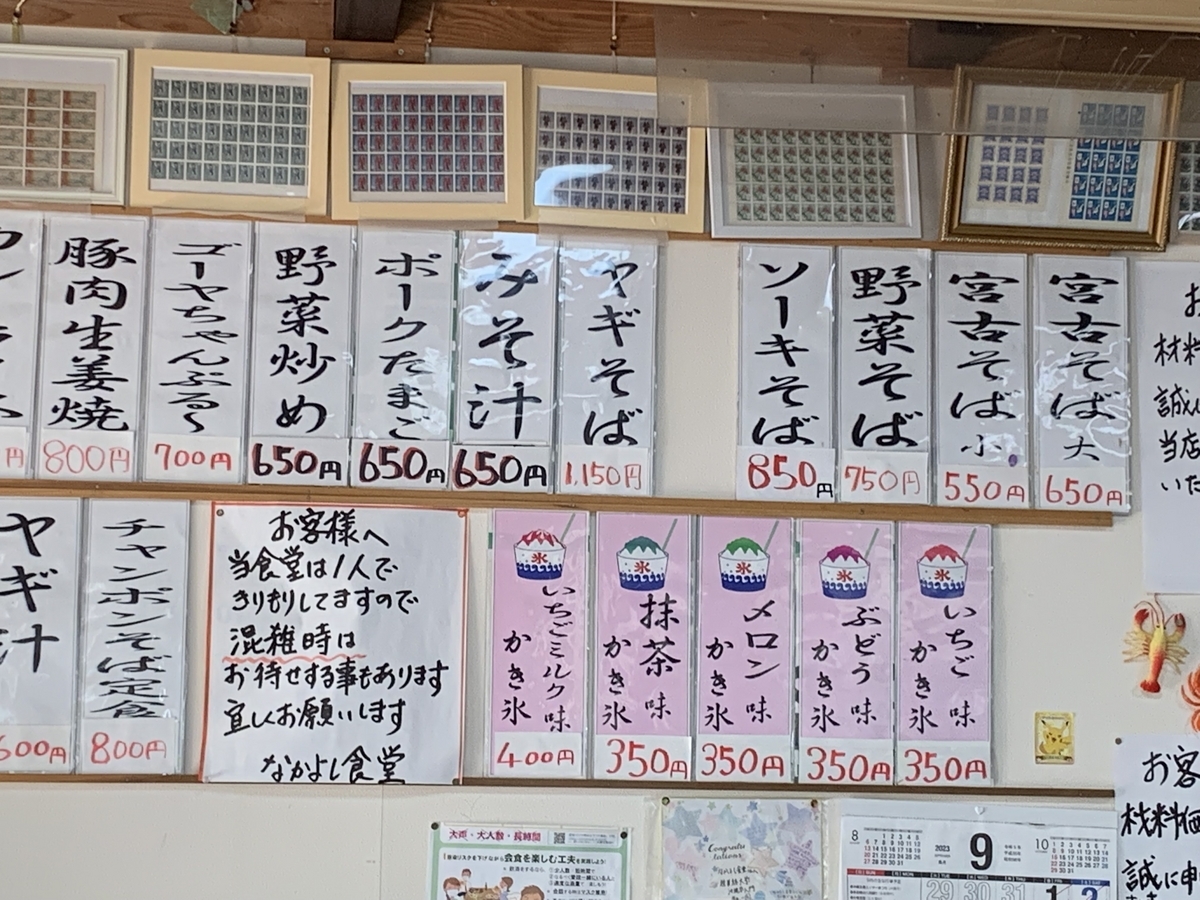 豚肉生姜焼
800円
ゴーヤちゃんぷるー
700円
野菜炒め
650円
ポークたまご
650円
みそ汁
650円
ヤギそば
1,150円
ソーキそば
850円
野菜そば
750円
宮古そば 小
550円
宮古そば 大
650円
ヤギ汁
チャンポンそば定食
800円
お客様へ
当食堂は1人で
きりもりしてますので
混雑時は
お待せする事もあります
宜しくお願いします
なかよし食堂
氷
いちごミルク味
かき氷
400円
氷
抹茶味
かき氷
350円
氷
メロン味
かき氷
350円
氷
ぶどう味
かき氷
350円
氷
いちご味
かき氷
350円
お客
材料価
誠に申
大声・大人数・長時間
会食を楽しむ工夫
Congratu
8
2023
9
10
29 30 31 1 2